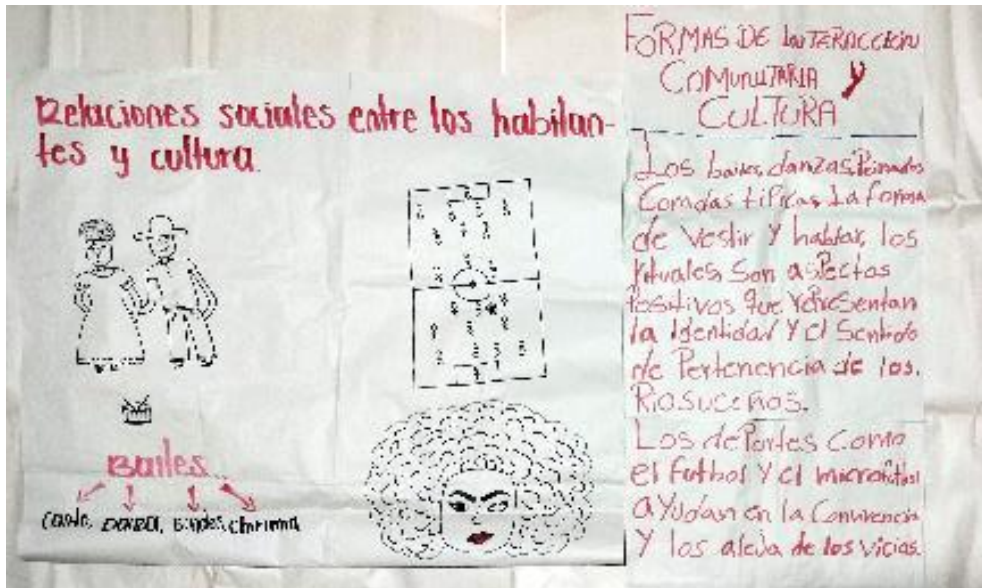 Relaciones sociales entre los habitan-
tes y cultura
Bailes
Canto, DANZA, Bandes, chirimia
FORMAS DE InTERACCION
COMUNITARIA Y
CULTURA
Los bailes, danzas, Peinados
Comidas tipicas, La forma
de Vestir Y hablar, los
rituales Son aspectos
Positivos que representan
la Identidad Y el Sentido
de Pertenencia de los
Riosuceños.
Los dePortes como
el futbol Y el microfutbol
ayudan en la Convivencia
Y los aleja de los vicios.